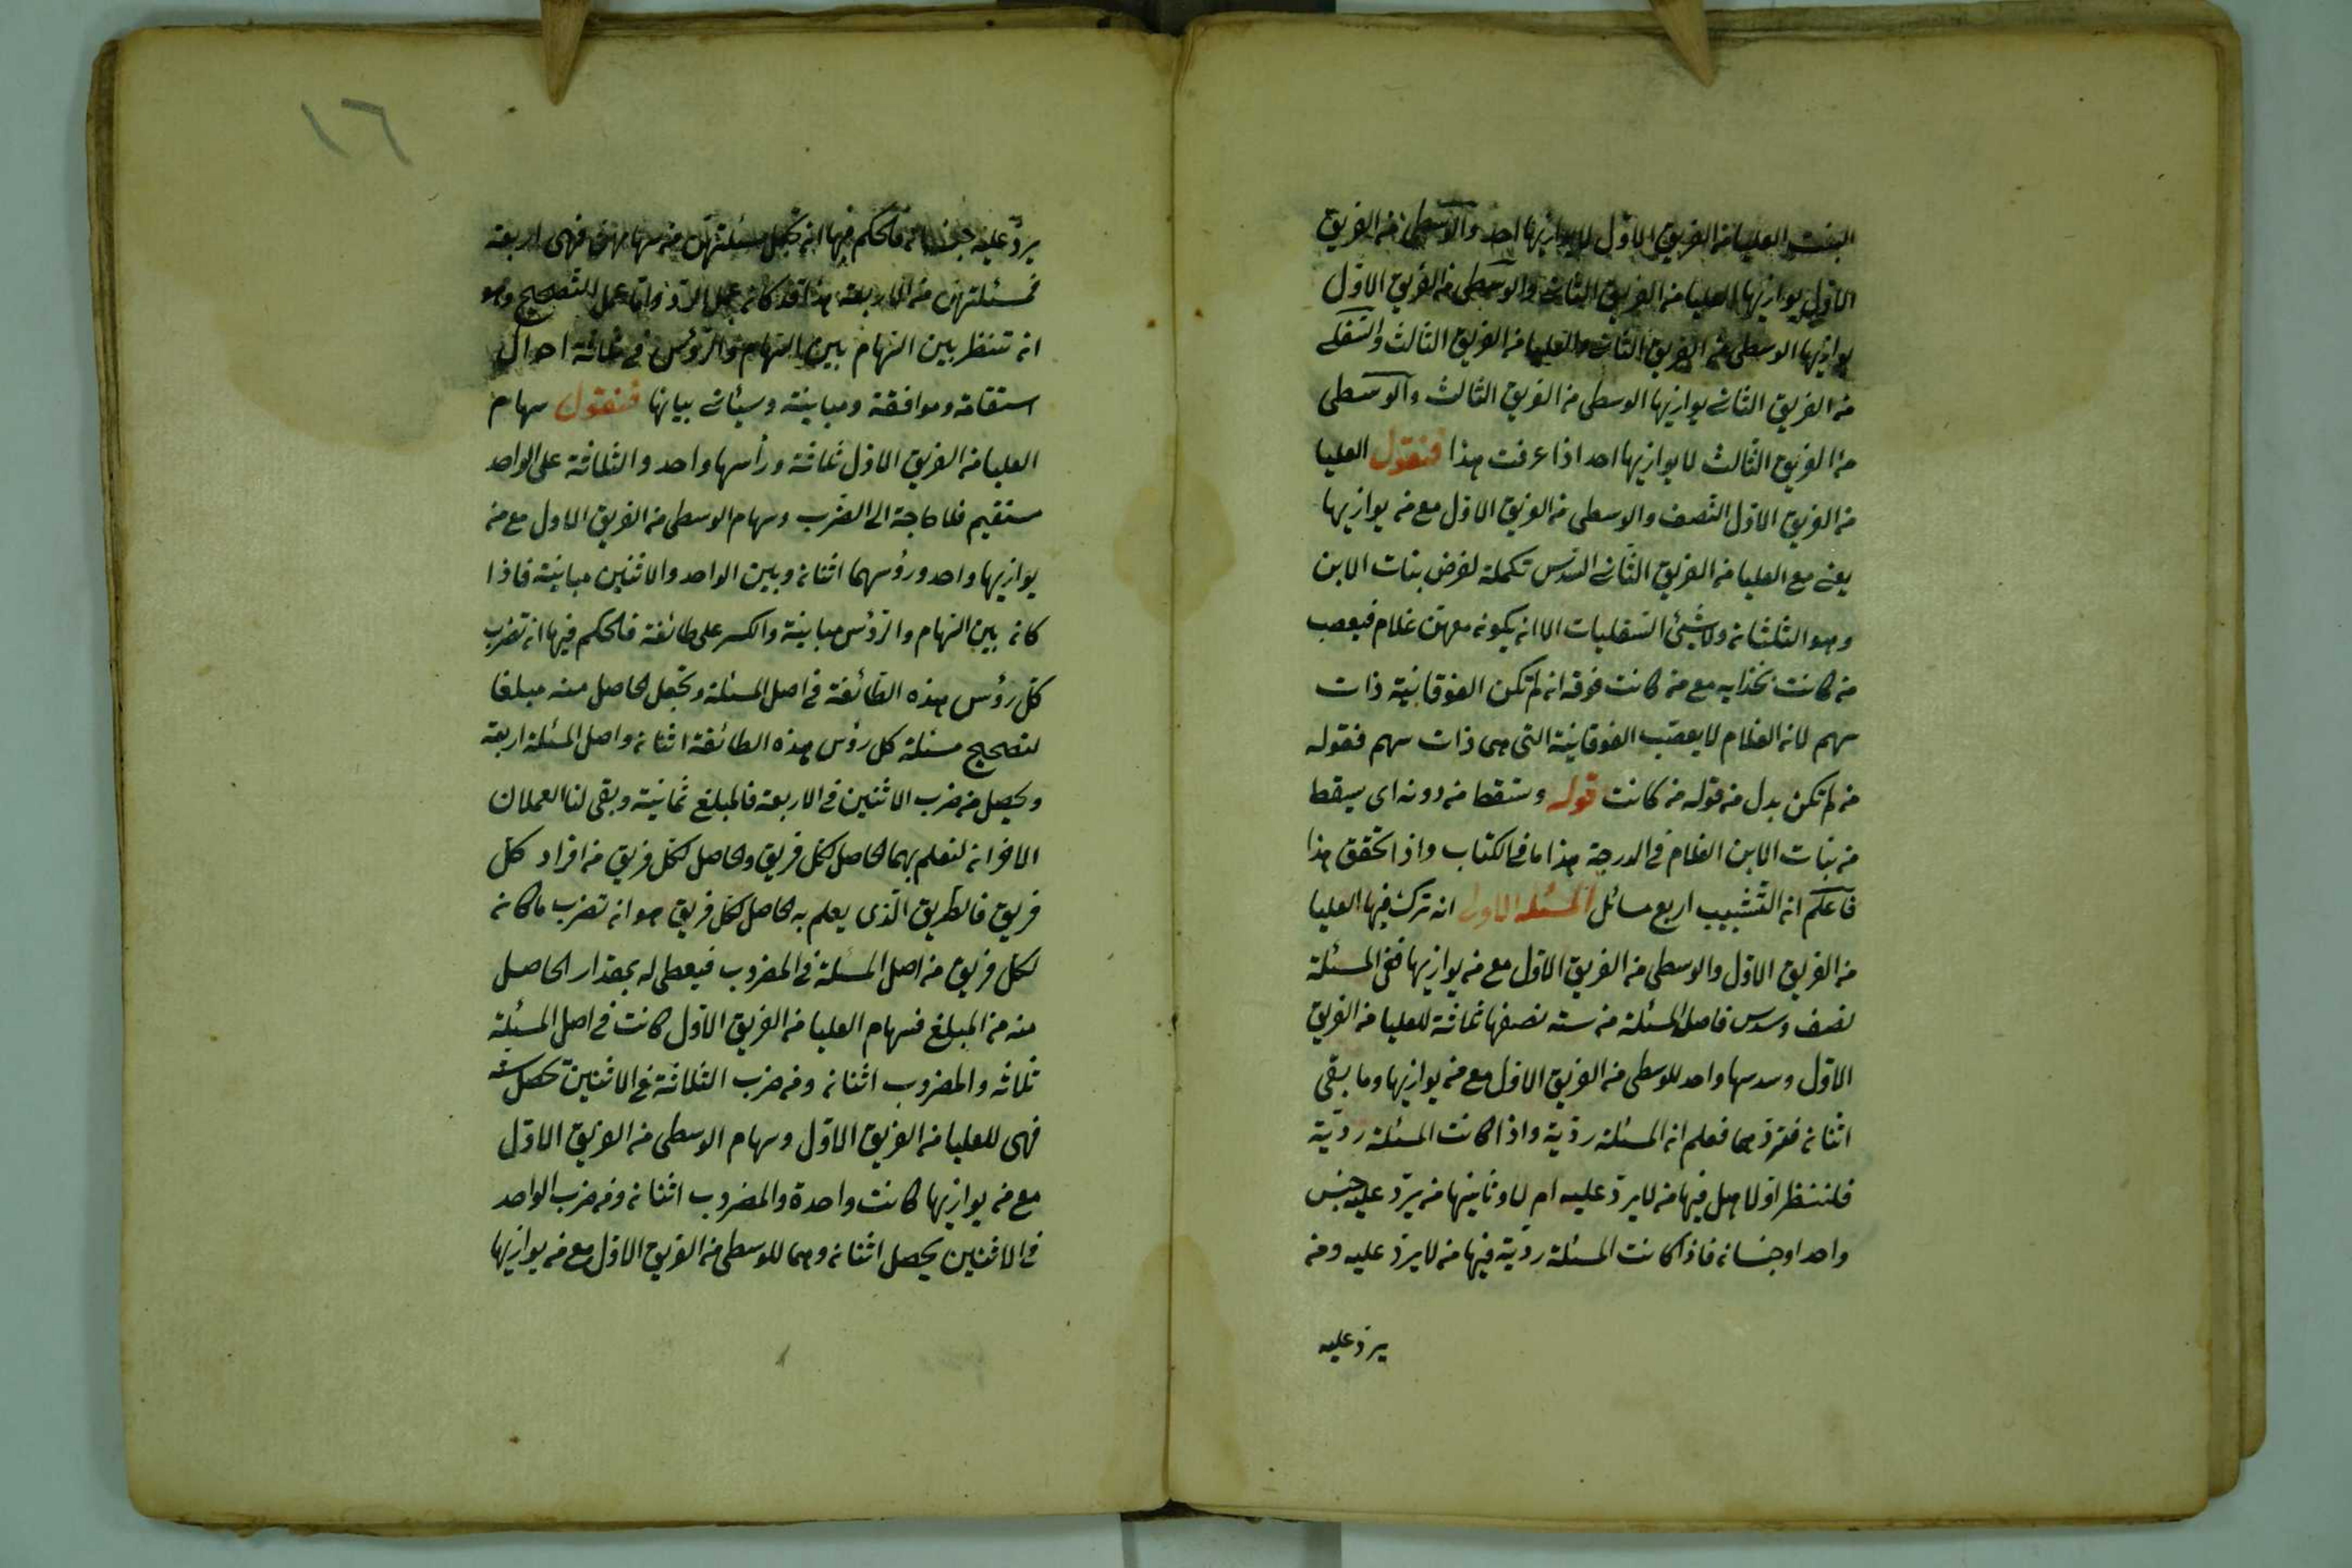 البنت العليا من الفريق الاول لا يوازيها احد والوسطى من الفريق
الاول يوازيها العليا من الفريق الثانى والوسطى من الفريق الاول
يوازيها الوسطى من الفريق الثانى والعليا من الفريق الثالث والسفلى
من الفريق الثانى يوازيها الوسطى من الفريق الثالث والوسطى
من الفريق الثالث لا يوازيها احد اذا عرفت هذا فنقول العليا
من الفريق الاول النصف والوسطى من الفريق الاول مع من يوازيها
يعنى مع العليا من الفريق الثانى السدس تكملة لفرض بنات الابن
وهو الثلثان ولا شئ السفليات الا ان يكون معهن غلام فيعصب
من كانت بحذايه مع من كانت فوقه ان لم تكن الفوقانية ذات
سهم لان الغلام لا يعصب الفوقانية التى هى ذات سهم فقوله
من لم تكن بدل من قوله من كانت قوله وسقط من دونه اى سيقط
من بنات الابن الغلام فى الدرجة هذا ما فى الكتاب واذا تحقق هذا
فاعلم ان التشبيب اربع مسائل المسئلة الاولى ان ترك فيها العليا
من الفريق الاول والوسطى من الفريق الاول مع من يوازيها ففى المسئلة
نصف وسدس فاصل المسئلة من ستة نصفها ثلاثة للعليا من الفريق
الاول وسدسها واحد للوسطى من الفريق الاول مع من يوازيها وما بقى
اثنان فترد هما فعلم ان المسئلة ردية واذا كانت المسئلة ردية
فلننظر اولا هل فيها من لا يرد عليه ام لا وثانيها من يرد عليه جنس
واحد او جنسان فاذا كانت المسئلة ردية فيها من لا يرد عليه ومن
يرد عليه
١٦
يرد عليه جنسان فالحكم فيها ان تجعل مسئلتهن من سهامهن فهى اربعة
فمسئلتهن من الاربعة هذا قد كان عمل الرد واما عمل التصحيح وهو
ان تنظر بين السهام بين السهام والرؤس فى ثلاثة احوال
استقامة وموافقة ومباينة وسيئاتى بيانها فنقول سهام
العليا من الفريق الاول ثلاثة ورأسها واحد والثلاثة على الواحد
مستقيم فلا حاجة الى الضرب وسهام الوسطى من الفريق الاول مع من
يوازيها واحد ورؤسهما اثنان وبين الواحد والاثنين مباينة فاذا
كان بين السهام والرؤس مباينة والكسر على طائفة فالحكم فيها ان تضرب
كل رؤس هذه الطائفة فى اصل المسئلة وتجعل الحاصل منه مبلغا
لتصحيح مسئلة كل رؤس هذه الطائفة اثنان واصل المسئلة اربعة
ويحصل من ضرب الاثنين فى الاربعة فالمبلغ ثمانية وبقى لنا العملان
الاخران لنعلم بهما الحاصل لكل فريق والحاصل لكل فريق من افراد كل
فريق فالطريق الذى يعلم به الحاصل لكل فريق هو ان تضرب ما كان
لكل فريق من اصل المسئلة فى المضروب فيعطى له بمقدار الحاصل
منه من المبلغ فسهام العليا من الفريق الاول كانت فى اصل المسئلة
ثلاثة والمضروب اثنان ومن ضرب الثلاثة فى الاثنين تحصل ستة
فهى للعليا من الفريق الاول وسهام الوسطى من الفريق الاول
مع من يوازيها كانت واحدة والمضروب اثنان ومن ضرب الواحد
فى الاثنين يحصل اثنان وهما للوسطى من الفريق الاول مع من يوازيها